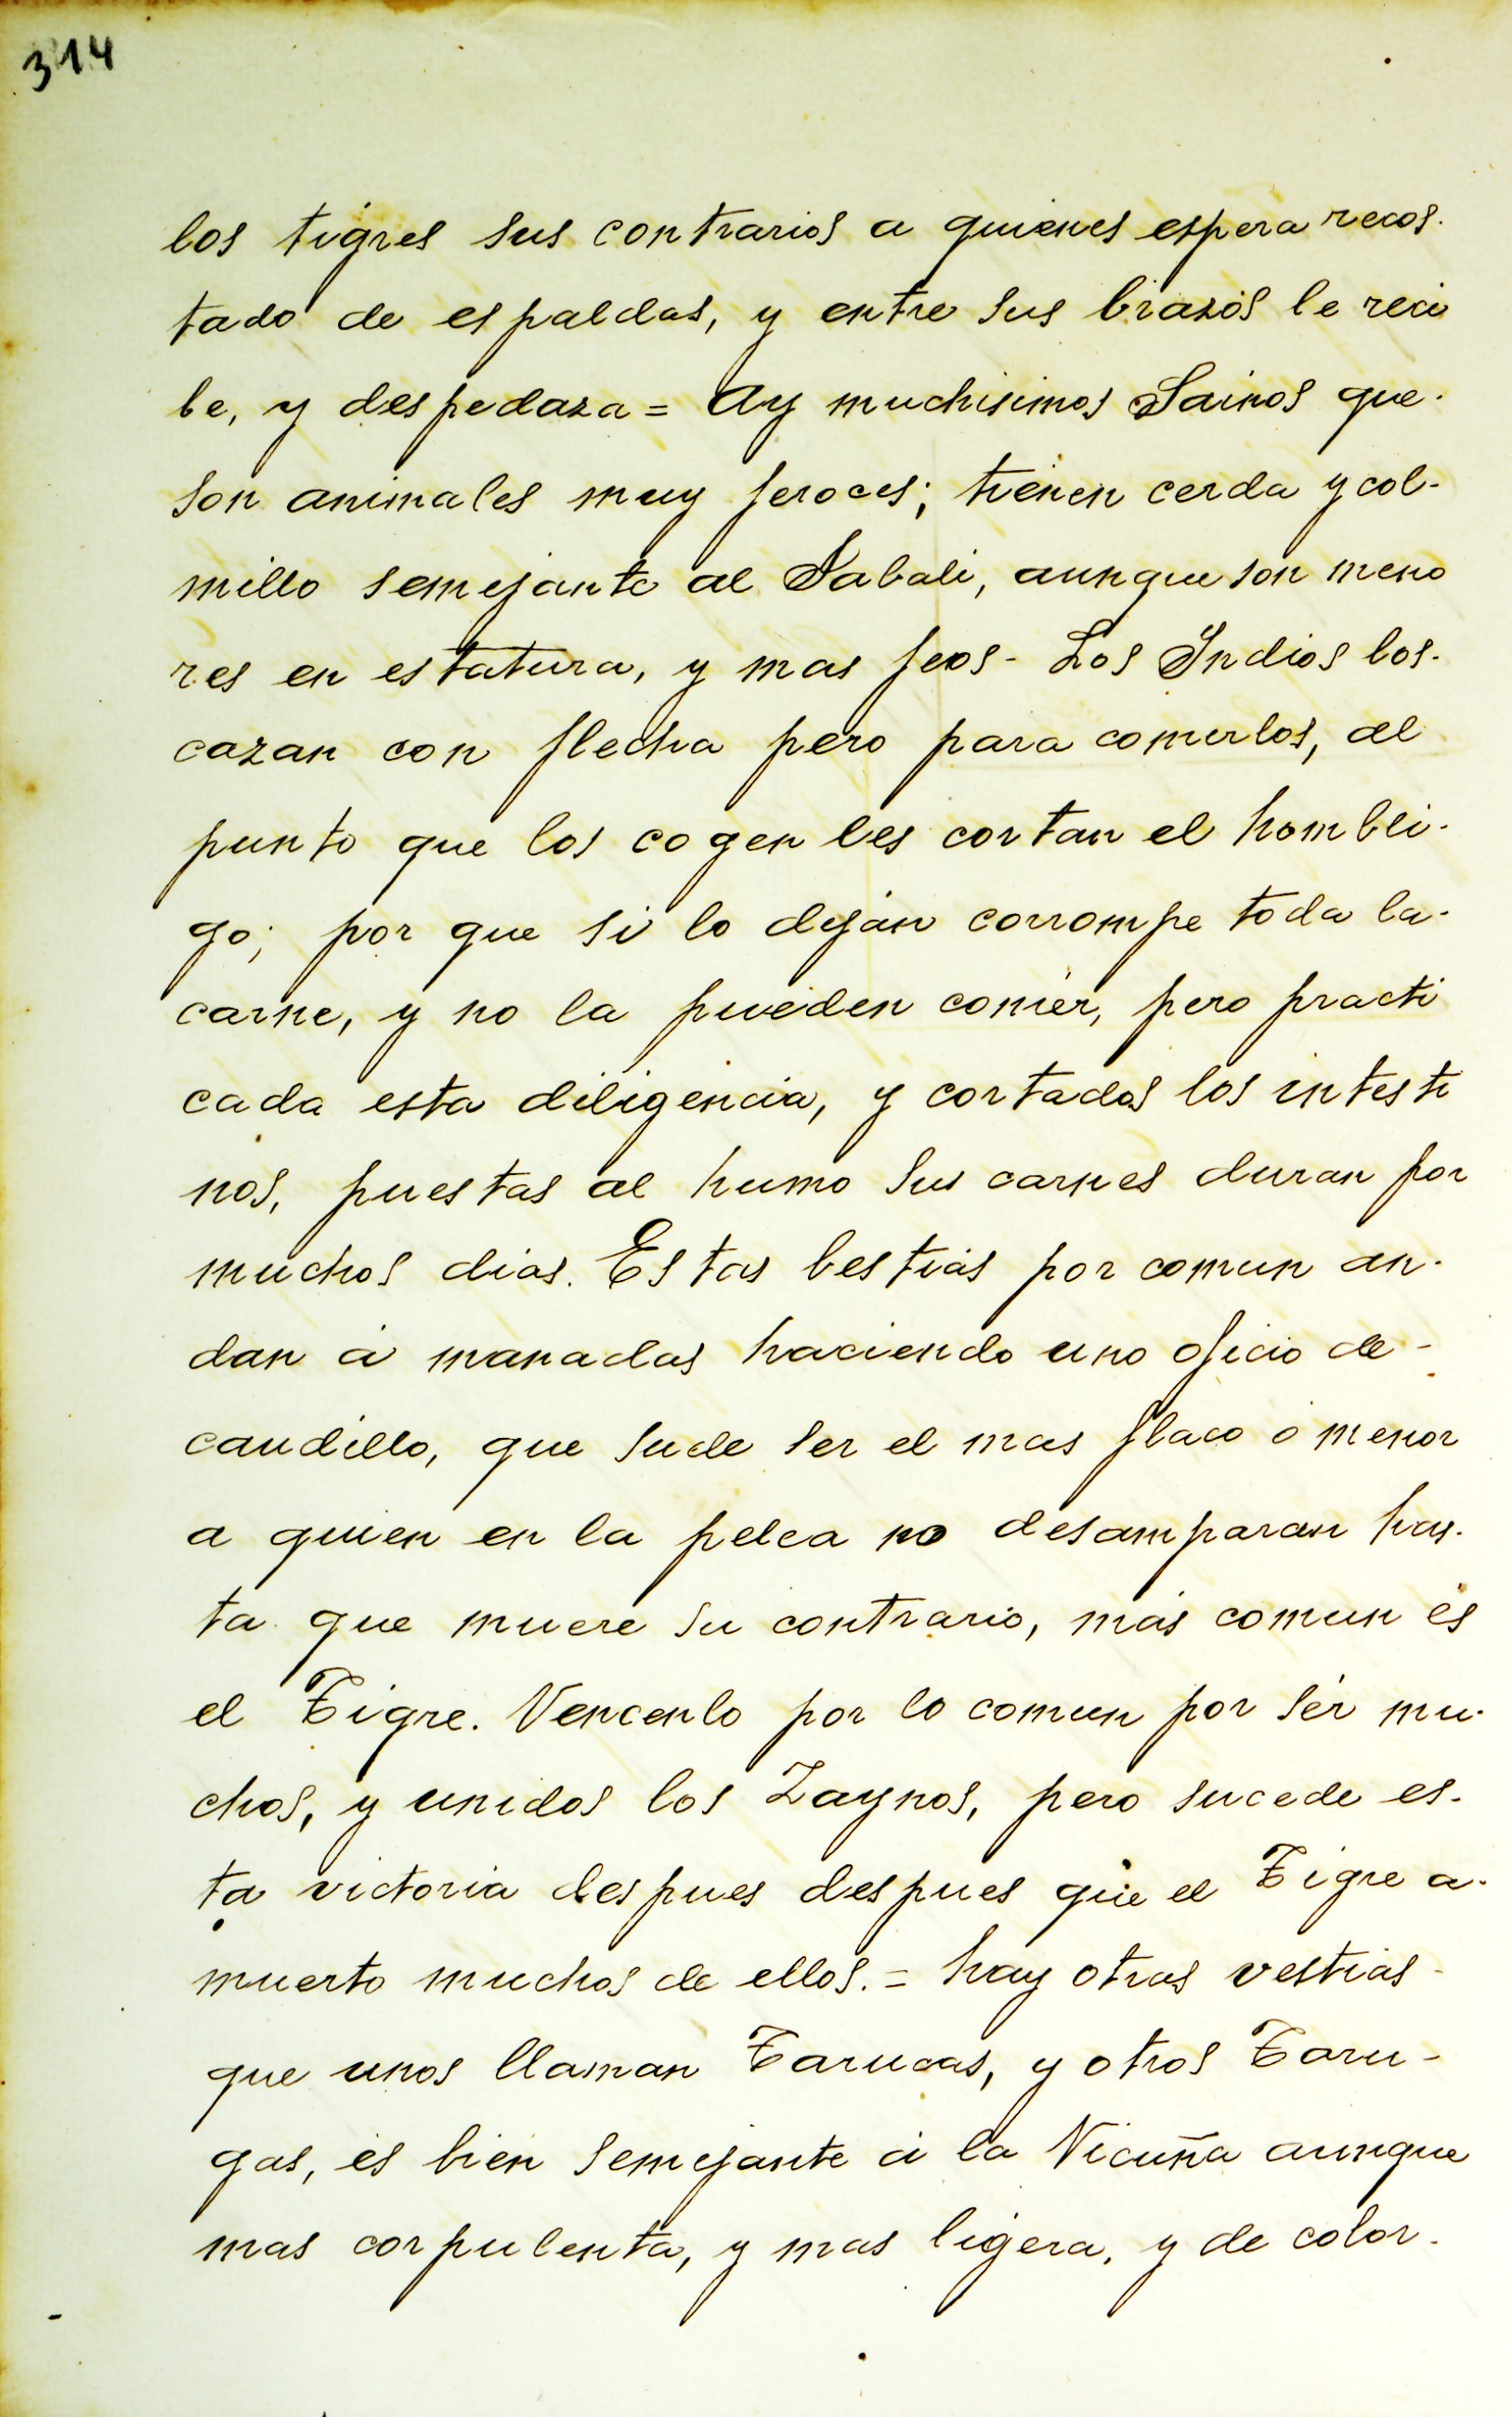 314
los tigres sus contrarios a quienes espera recos-
tado de espaldas, y entre sus brazos le reci
be, y despedaza = Ay muchisimos Sainos que.
son animales muy feroces; tienen cerda y col-
millo semejante al Jabali, aunque son meno
res en estatura, y mas feos - Los Indios los.
cazan con flecha pero para comerlos, al
punto que los cogen les cortan el hombli-
go; por que si lo dejan corrompe toda la.
carne, y no la pueden comer, pero practi
cada esta diligencia, y cortados los intesti
nos, puestas al humo sus carnes duran por
muchos dias. Estas bestias por comun an-
dan á manadas haciendo uno oficio de -
caudillo, que suele ser el mas flaco ó menor
a quien en la pelea no desamparan has-
ta que muere su contrario, mas comun es
el Tigre. Vencenlo por lo comun por ser mu-
chos, y unidos los Zaynos, pero sucede es-
ta victoria despues despues que el Tigre a.
muerto muchos de ellos. = hay otras vestias -
que unos llaman Tarucas, y otros Taru-
gas, es bien semejante á la Vicuña aunque
mas corpulenta, y mas ligera, y de color.